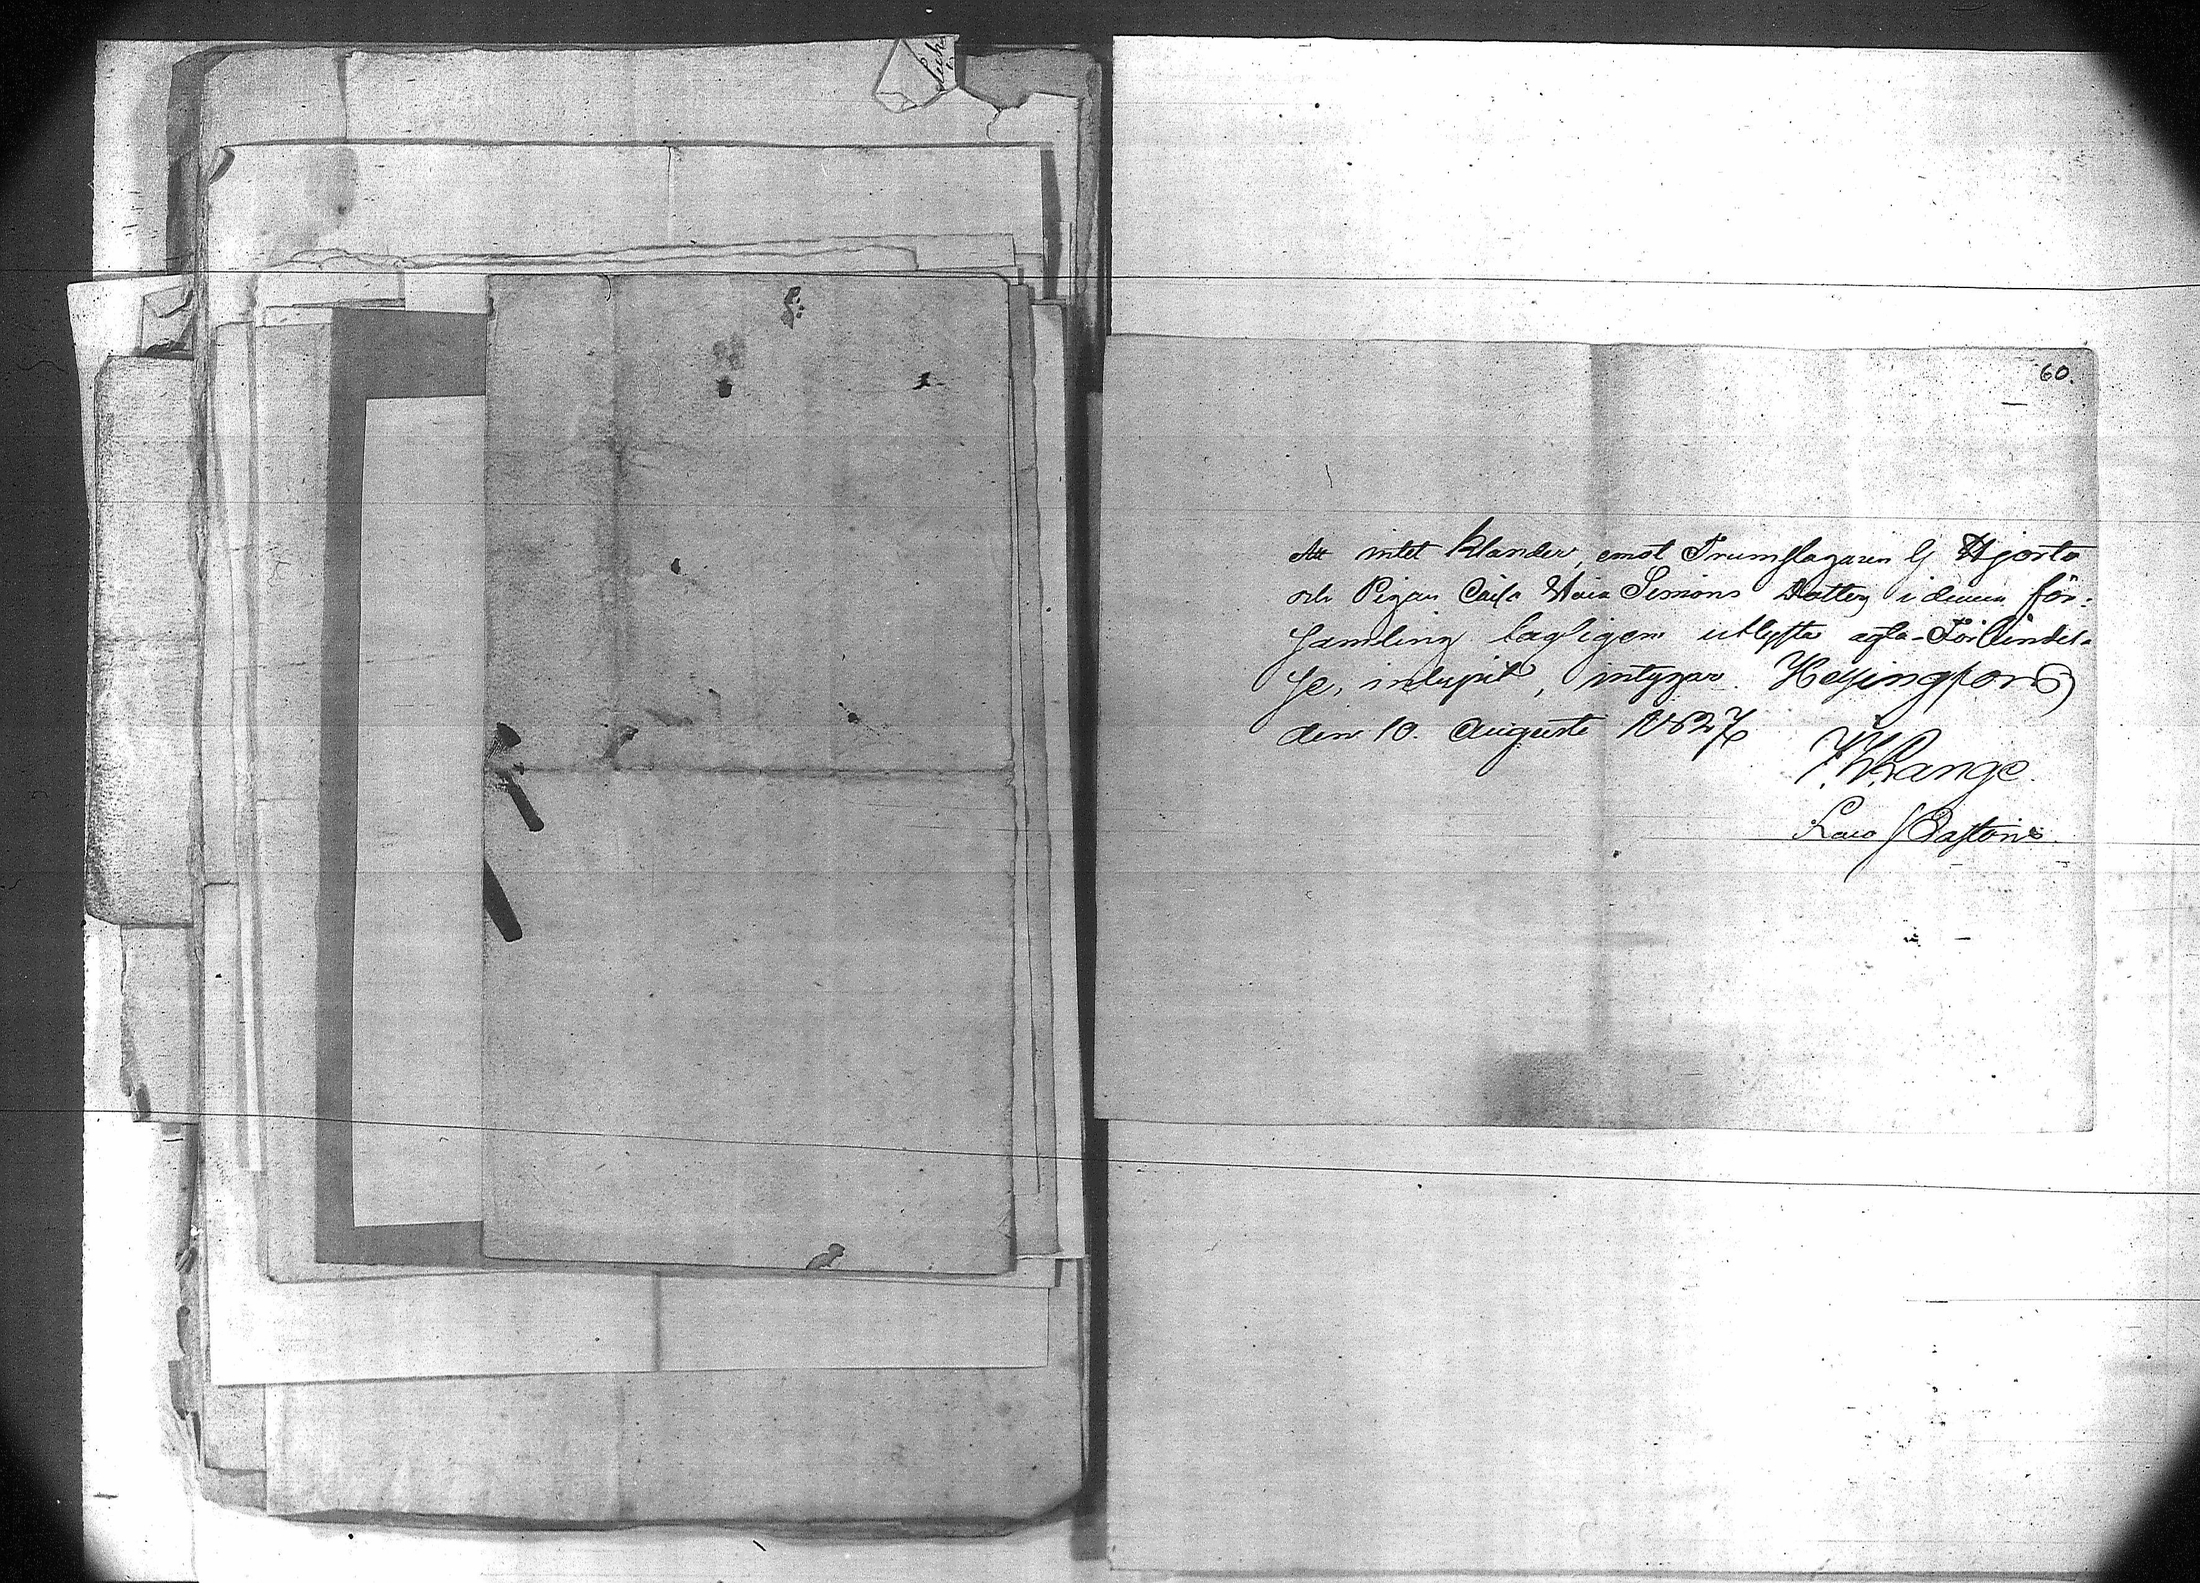 60.
Att intet klander, emot Trumslagaren G Hjorto
och Pigan Caisa Maia Simons Dotter i denna för-
samling lagligen utlysta ägta-Förbindel-
se, inlupit, intygar. Helsingfors
den 10. Augusti 1827
Range
Pastors.